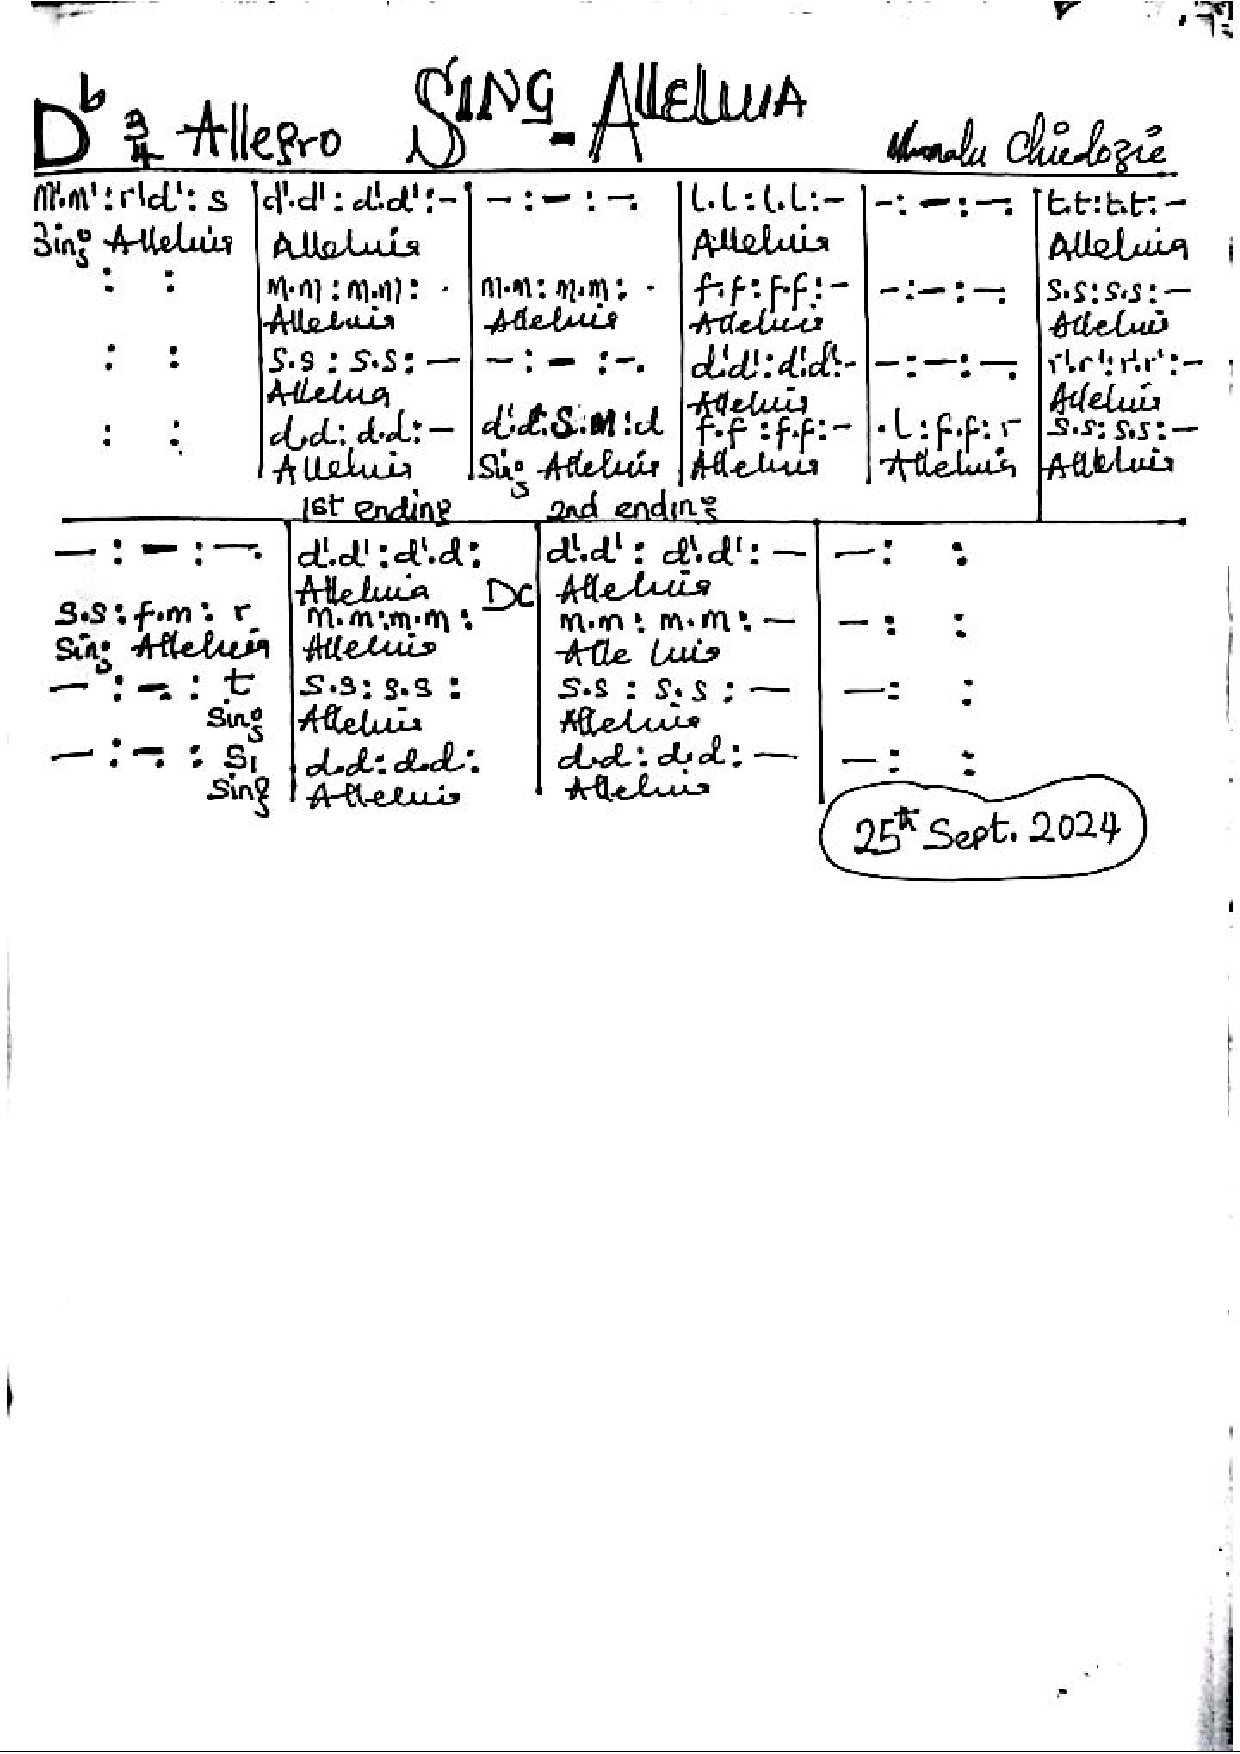 D♭ 3/4 Allegro SING-ALLELUIA
Chielozie
m'.m' : r'.d' : s | d'.d' : d'.d' : – | – : – : –. | l.l : l.l : – | – : – : –. | t.t : t.t : –
Sing Alleluia Alleluia Alleluia Alleluia
: : | m.m : m.m : . | m.m : m.m : . | f.f : f.f : – | – : – : –. | s.s : s.s : –
Alleluia Alleluia Alleluia Alleluia
: : | s.s : s.s : – | – : – : –. | d'.d' : d'.d' : – | – : – : –. | r'.r' : r'.r' : –
Allelua Alleluia Alleluia
: : | d.d : d.d : – | d'.d' : s.m : d | f.f : f.f : – | .l : f.f : r | s.s : s.s : –
Alleluia Sing Alleluia Alleluia Alleluia Alleluia
1st ending 2nd ending
– : – : –. | d'.d' : d'.d : | d'.d' : d'.d' : – | – : :
Alleluia DC Alleluia
s.s : f.m : r | m.m : m.m : | m.m : m.m : – | – : :
Sing Alleluia Alleluia Alle luia
– : –. : t | s.s : s.s : | s.s : s.s : – | – : :
Sing Alleluia Alleluia
– : –. : s₁ | d.d : d.d : | d.d : d.d : – | – : :
Sing Alleluia Alleluia
25th Sept. 2024